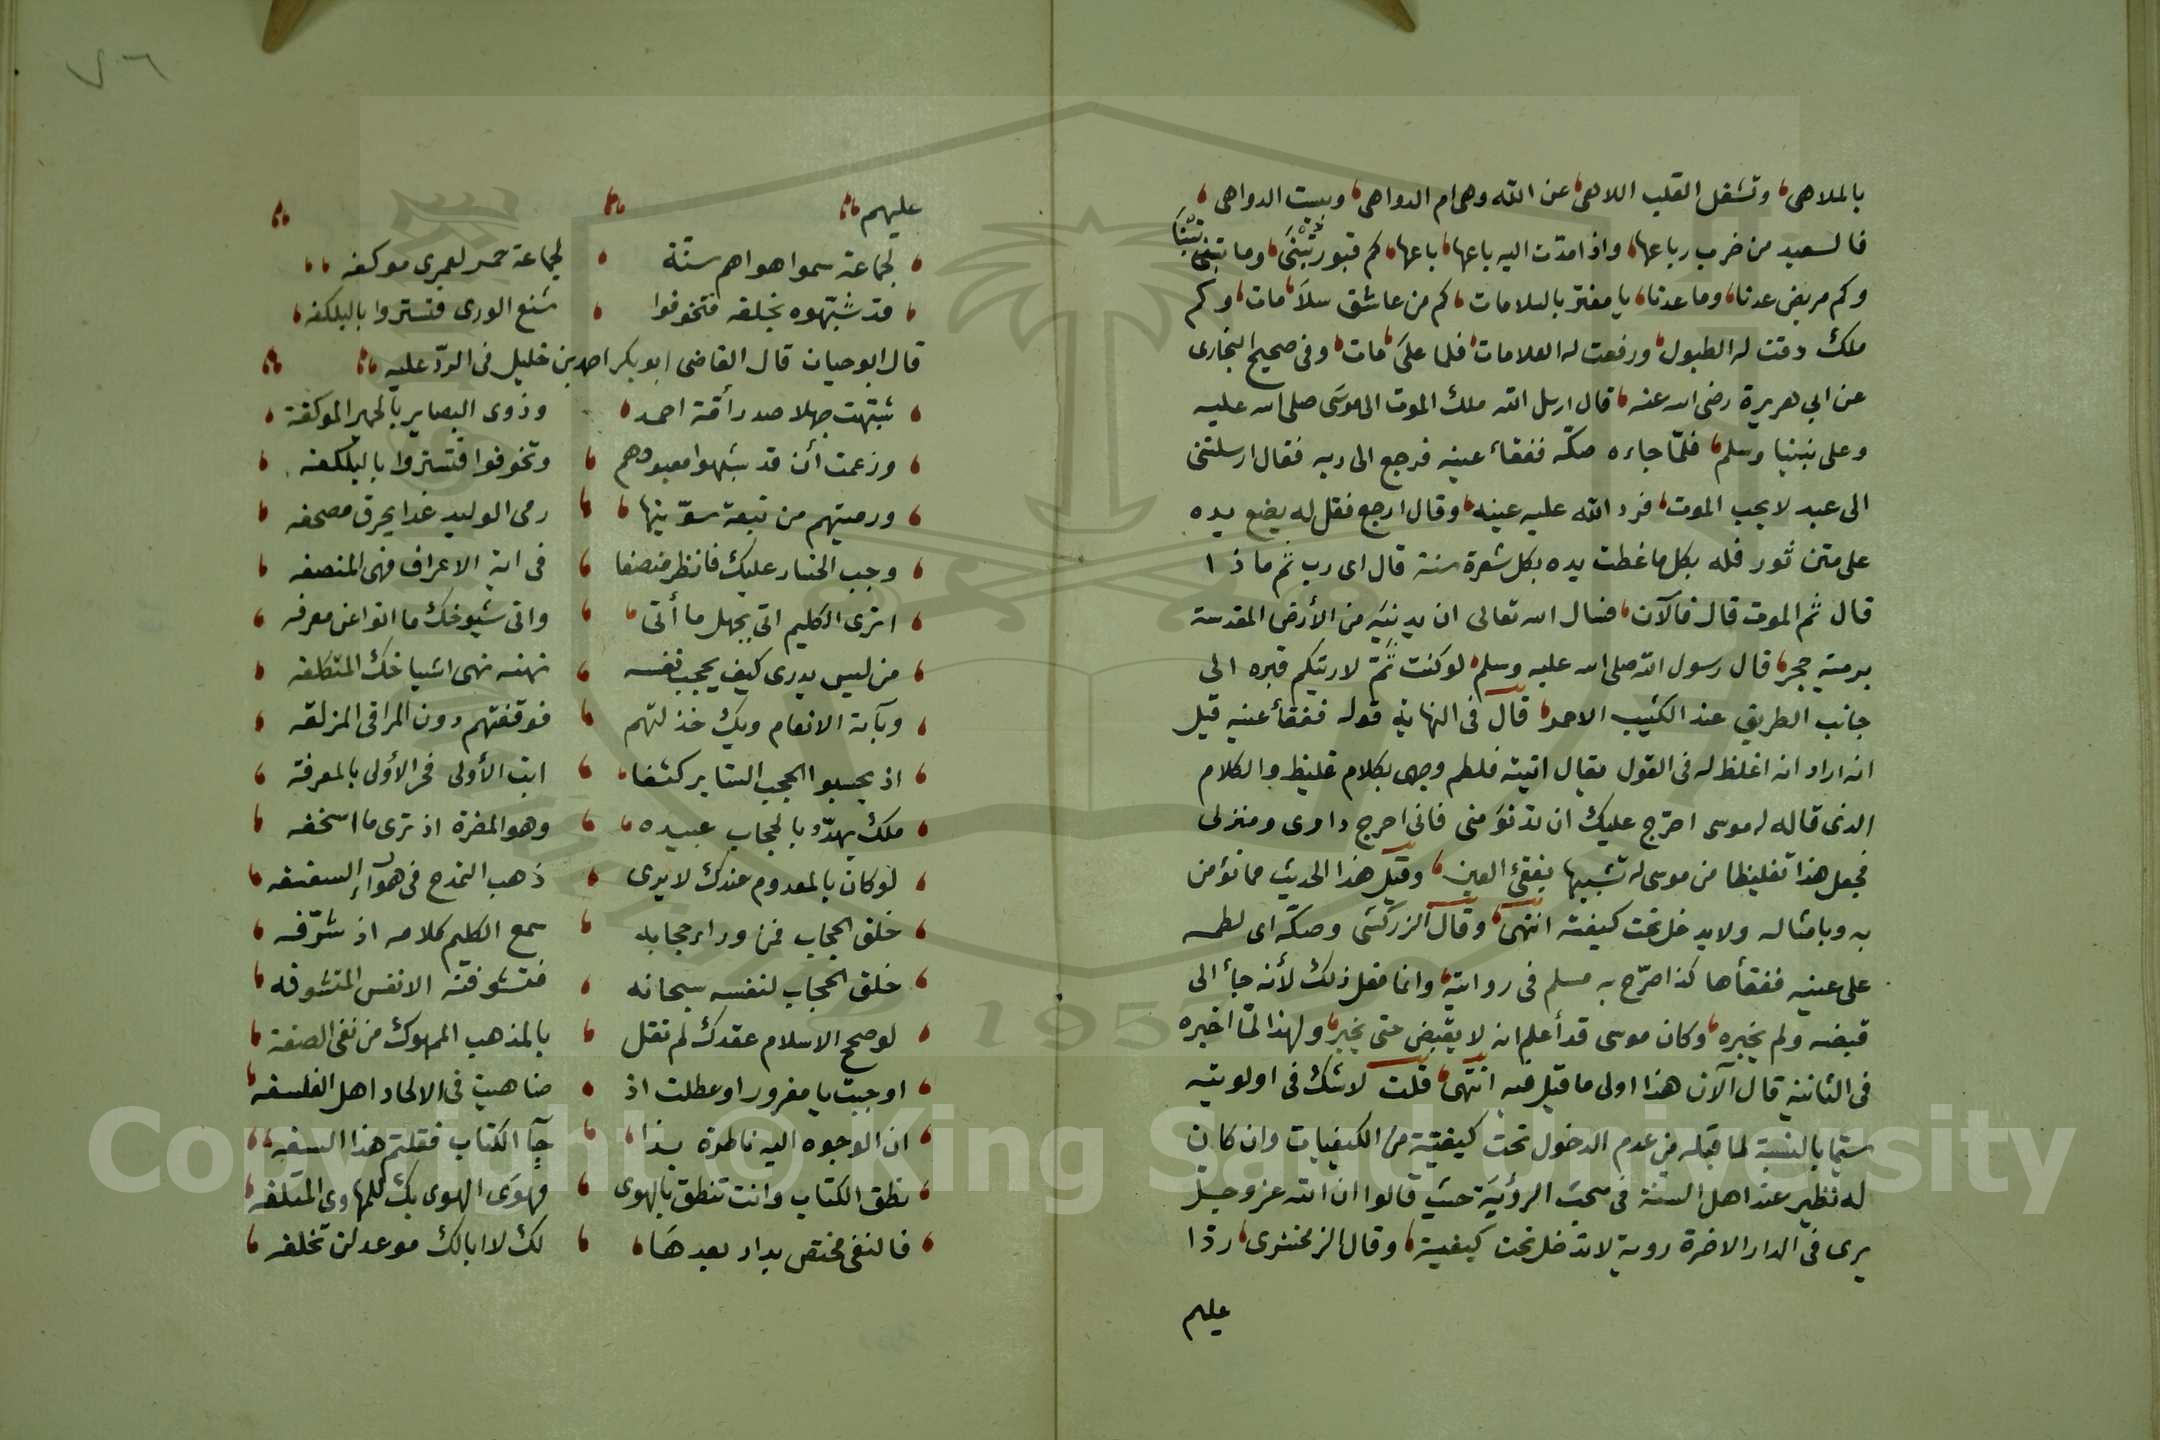 بالملاهى وتشغل القلب اللاهى عن الله وهى ام الدواهى وبيست الدواهى
فالسعيد من ضرب رباعها واذا مدّت اليه باعها باعها كم قبور تبنى وما تبنى تبنا
وكم مريض عدنا وما عدنا يا مغتر بالسلامات كم من عاشق سلا مات وكم
ملك دقت له الطبول ورفعت له العلامات فلما على مات وفى صحيح البخارى
عن ابي هريرة رضى الله عنه قال ارسل الله ملك الموت الى موسى صلى الله عليه
وعلى نبينا وسلم فلمّا جاءه صكّه ففقأ عينه فرجع الى ربه فقال ارسلتنى
الى عبد لا يحب الموت فرد الله عليه عينه وقال ارجع فقل له يضع يده
على متن ثور فله بكل ما غطت يده بكل شعرة سنة قال اى رب ثم ماذا
قال ثم الموت قال فالآن فسال الله تعالى ان يدنيه من الأرض المقدسة
برمية حجر قال رسول الله صلى الله عليه وسلم لو كنت ثَمّ لاريتكم قبره الى
جانب الطريق عند الكثيب الاحمر قال فى النهاية قوله ففقأ عينه قيل
انه اراد انه اغلظ له فى القول يقال اتيته فلطم وجهى بكلام غليظ والكلام
الذى قاله له موسى احرّج عليك ان تدنو منى فانى احرج دارى ومنزلى
فجعل هذا تغليظا من موسى له تشبيها بفقئ العين وقيل هذا الحديث مما نؤمن
به وبامثاله ولا يدخل تحت كيفية انتهى وقال الزركشى وصكّه اى لطمه
على عينه ففقأها كذا صرّح به مسلم فى رواية وانما فعل ذلك لأنه جأ الى
قبضه ولم يخبره وكان موسى قد أعلم انه لا يقبض حتى يخير ولهذا لمّا اخبره
فى الثانية قال الآن هذا اولى ما قيل فيه انتهى قلت لا شك فى اولويته
سيّما بالنسبة لما قبله من عدم الدخول تحت كيفيّة من الكيفيات وان كان
له نظير عند اهل السنّة فى مبحث الرؤية حيث قالوا ان الله عز وجل
يرى فى الدار الاخرة روية لا تدخل تحت كيفية وقال الزمخشرى ردّا
عليهم
٧٦
عليهم
لجماعة سموا هواهم سنّة لجماعة حمر لعمرى موكفه
قد شبّهوه بخلقه فتخوفوا شنع الورى فتستروا بالبلكفه
قال ابو حيان قال القاضى ابو بكر احمد بن خليل فى الردّ عليه
شبّهت جهلا صدر أمّة احمد وذوى البصاير بالحمير الموكفة
وزعمت أن قد شبّهوا معبودهم وتخوفوا فتستروا بالبلكفه
ورميتهم من نبعة سوّيتها رمى الوليد غدا يحرق مصحفه
وجب الخسار عليك فانظر منصفا فى اية الاعراف فهى المنصفه
اترى الكليم اتى بجهل ما أتى واتى شيوخك ما اتوا عن معرفه
من ليس يدرى كيف يحجب نفسه نهنه نهى اشياخك المتكلفه
وبآية الانعام ويك خذلتهم فوقفتهم دون المراقى المزلفه
اذ يحسبوا الحجب الستاير كشفا ابت الأولى فخر الأولى بالمعرفة
ملك يهدّد بالحجاب عبيده وهو المضرة اذ ترى ما اسخفه
لو كان بالمعدوم عندك لا يرى ذهب التمدح فى هوآء السفسفه
خلق الحجاب فمن وراء حجابه سمع الكليم كلامه اذ شرّفه
خلق الحجاب لنفسه سبحانه فتشوفته الانفس المتشوفه
لو صح الاسلام عقدك لم تقل بالمذهب المهوك من نفى الصفة
اوجبت يا مغرور او عطلت اذ ضاهيت فى الالحاد اهل الفلسفه
ان الوجوه اليه ناظرة بذا جآ الكتاب فقلتم هذا السفه
نطق الكتاب وانت تنطق بالهوى فهوى الهوى بك للمهاوى المتلفه
فالنفى مختص بدار بعدها لك لا ابالك موعد لن تخلفه